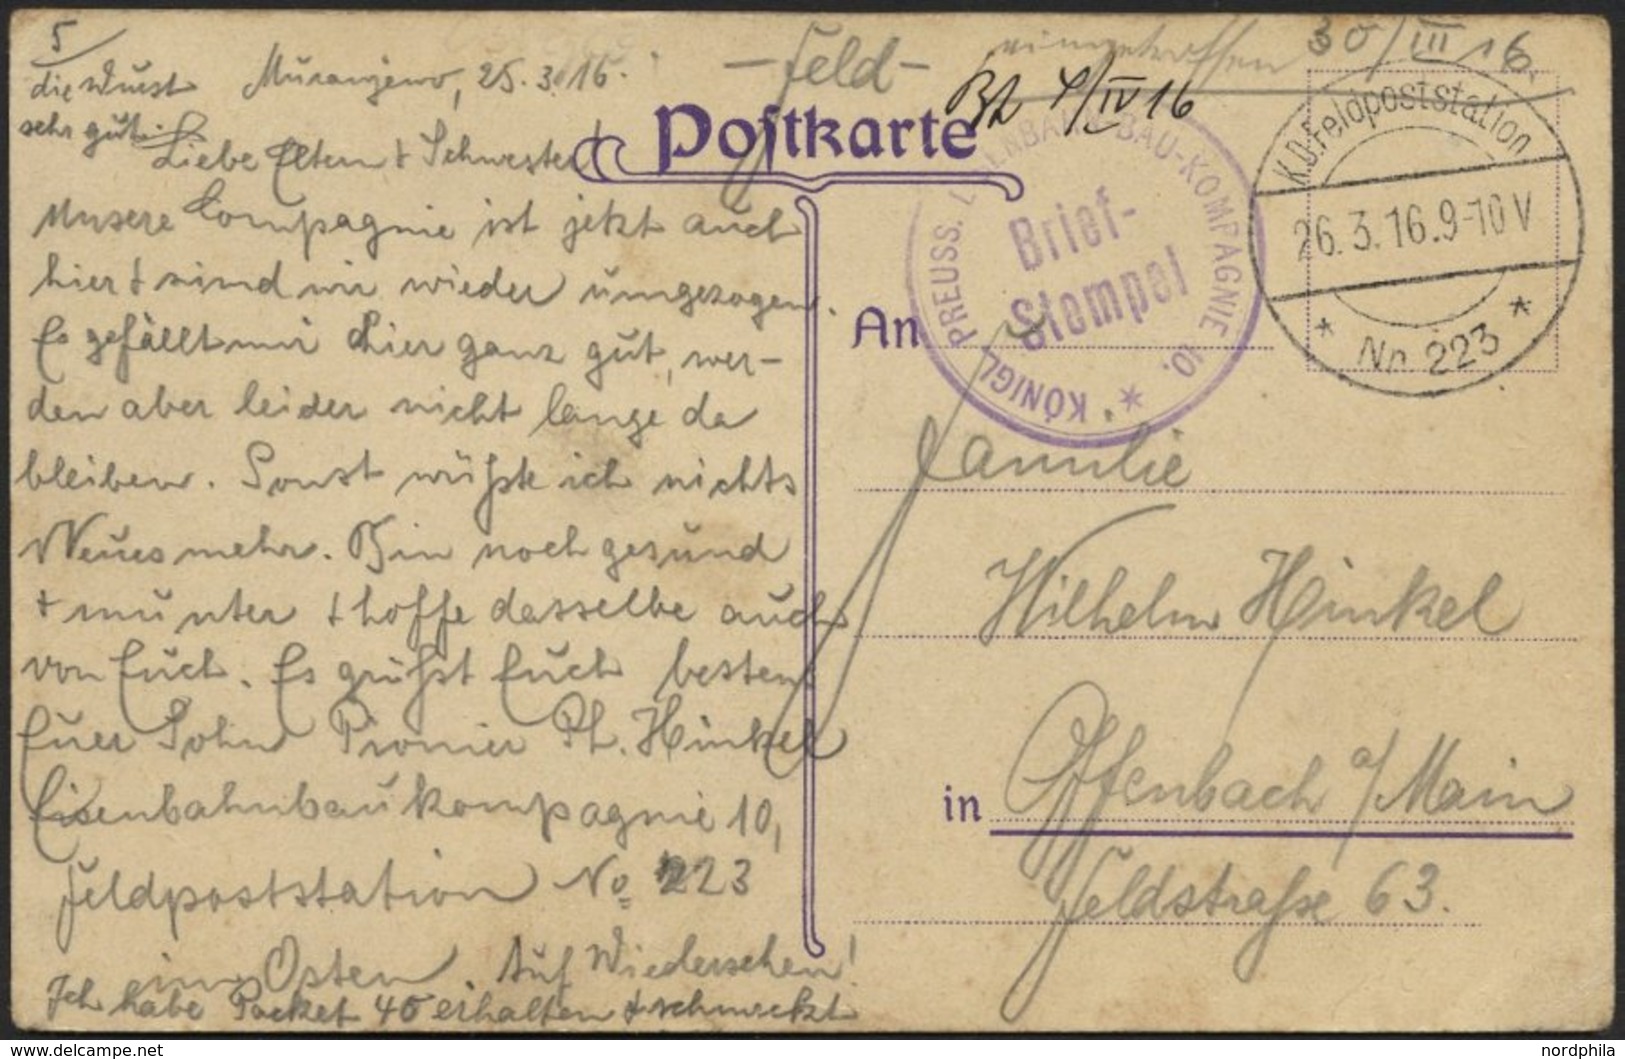 5
die Wurst
sehr gut.
Muranjewo, 25.3.16.
-Feld-
eingetroffen 30/III 16.
Bh 4/IV 16
Postkarte
Liebe Eltern & Schwester!
Unsere Compagnie ist jetzt auch
hier & sind wir wieder umgezogen.
Es gefällt mir hier ganz gut, wer-
den aber leider nicht lange da
bleiben. Sonst wüßte ich nichts
Neues mehr. Bin noch gesund
& munter & hoffe dasselbe auch
von Euch. Es grüßt Euch bestens
Euer Sohn Pionier Ph. Hinkel
Eisenbahnbaukompagnie 10,
Feldpoststation No 223
im Osten. Auf Wiedersehen!
Ich habe Packet 40 erhalten & schmeckt
KÖNIGL. PREUSS. EISENBAHN-BAU-KOMPAGNIE 10.
Brief-
Stempel
K.D.Feldpoststation
26.3.16.9-10V
* Nr. 223 *
An
Familie
Wilhelm Hinkel
in Offenbach a/Main
Feldstraße 63.
delcampe.net
nordphila